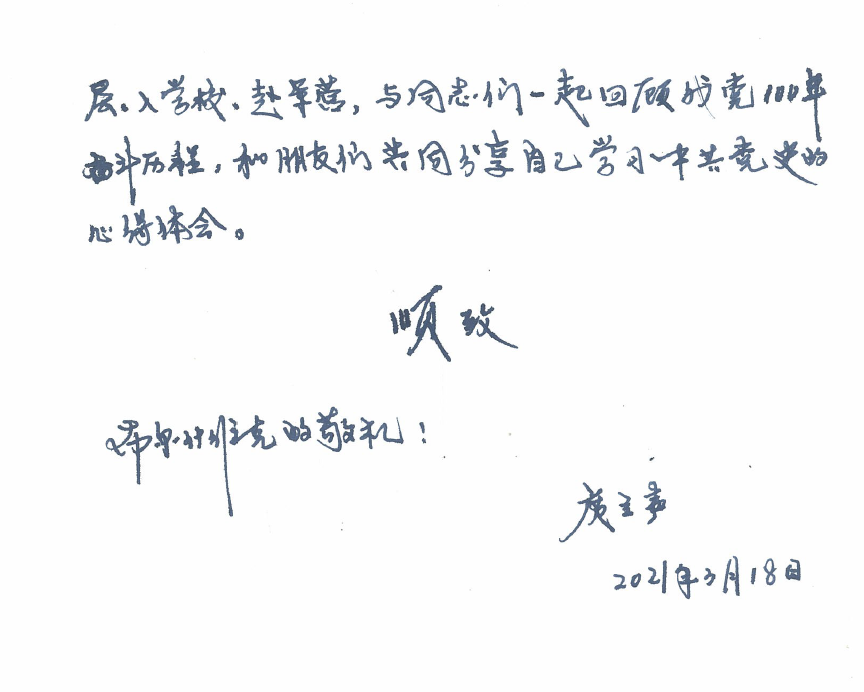 层、入学校、赴军营，与同志们一起回顾我党100年
奋斗历程，和朋友们共同分享自己学习中共党史的
心得体会。
顺致
布尔什维克的敬礼！
2021年3月18日